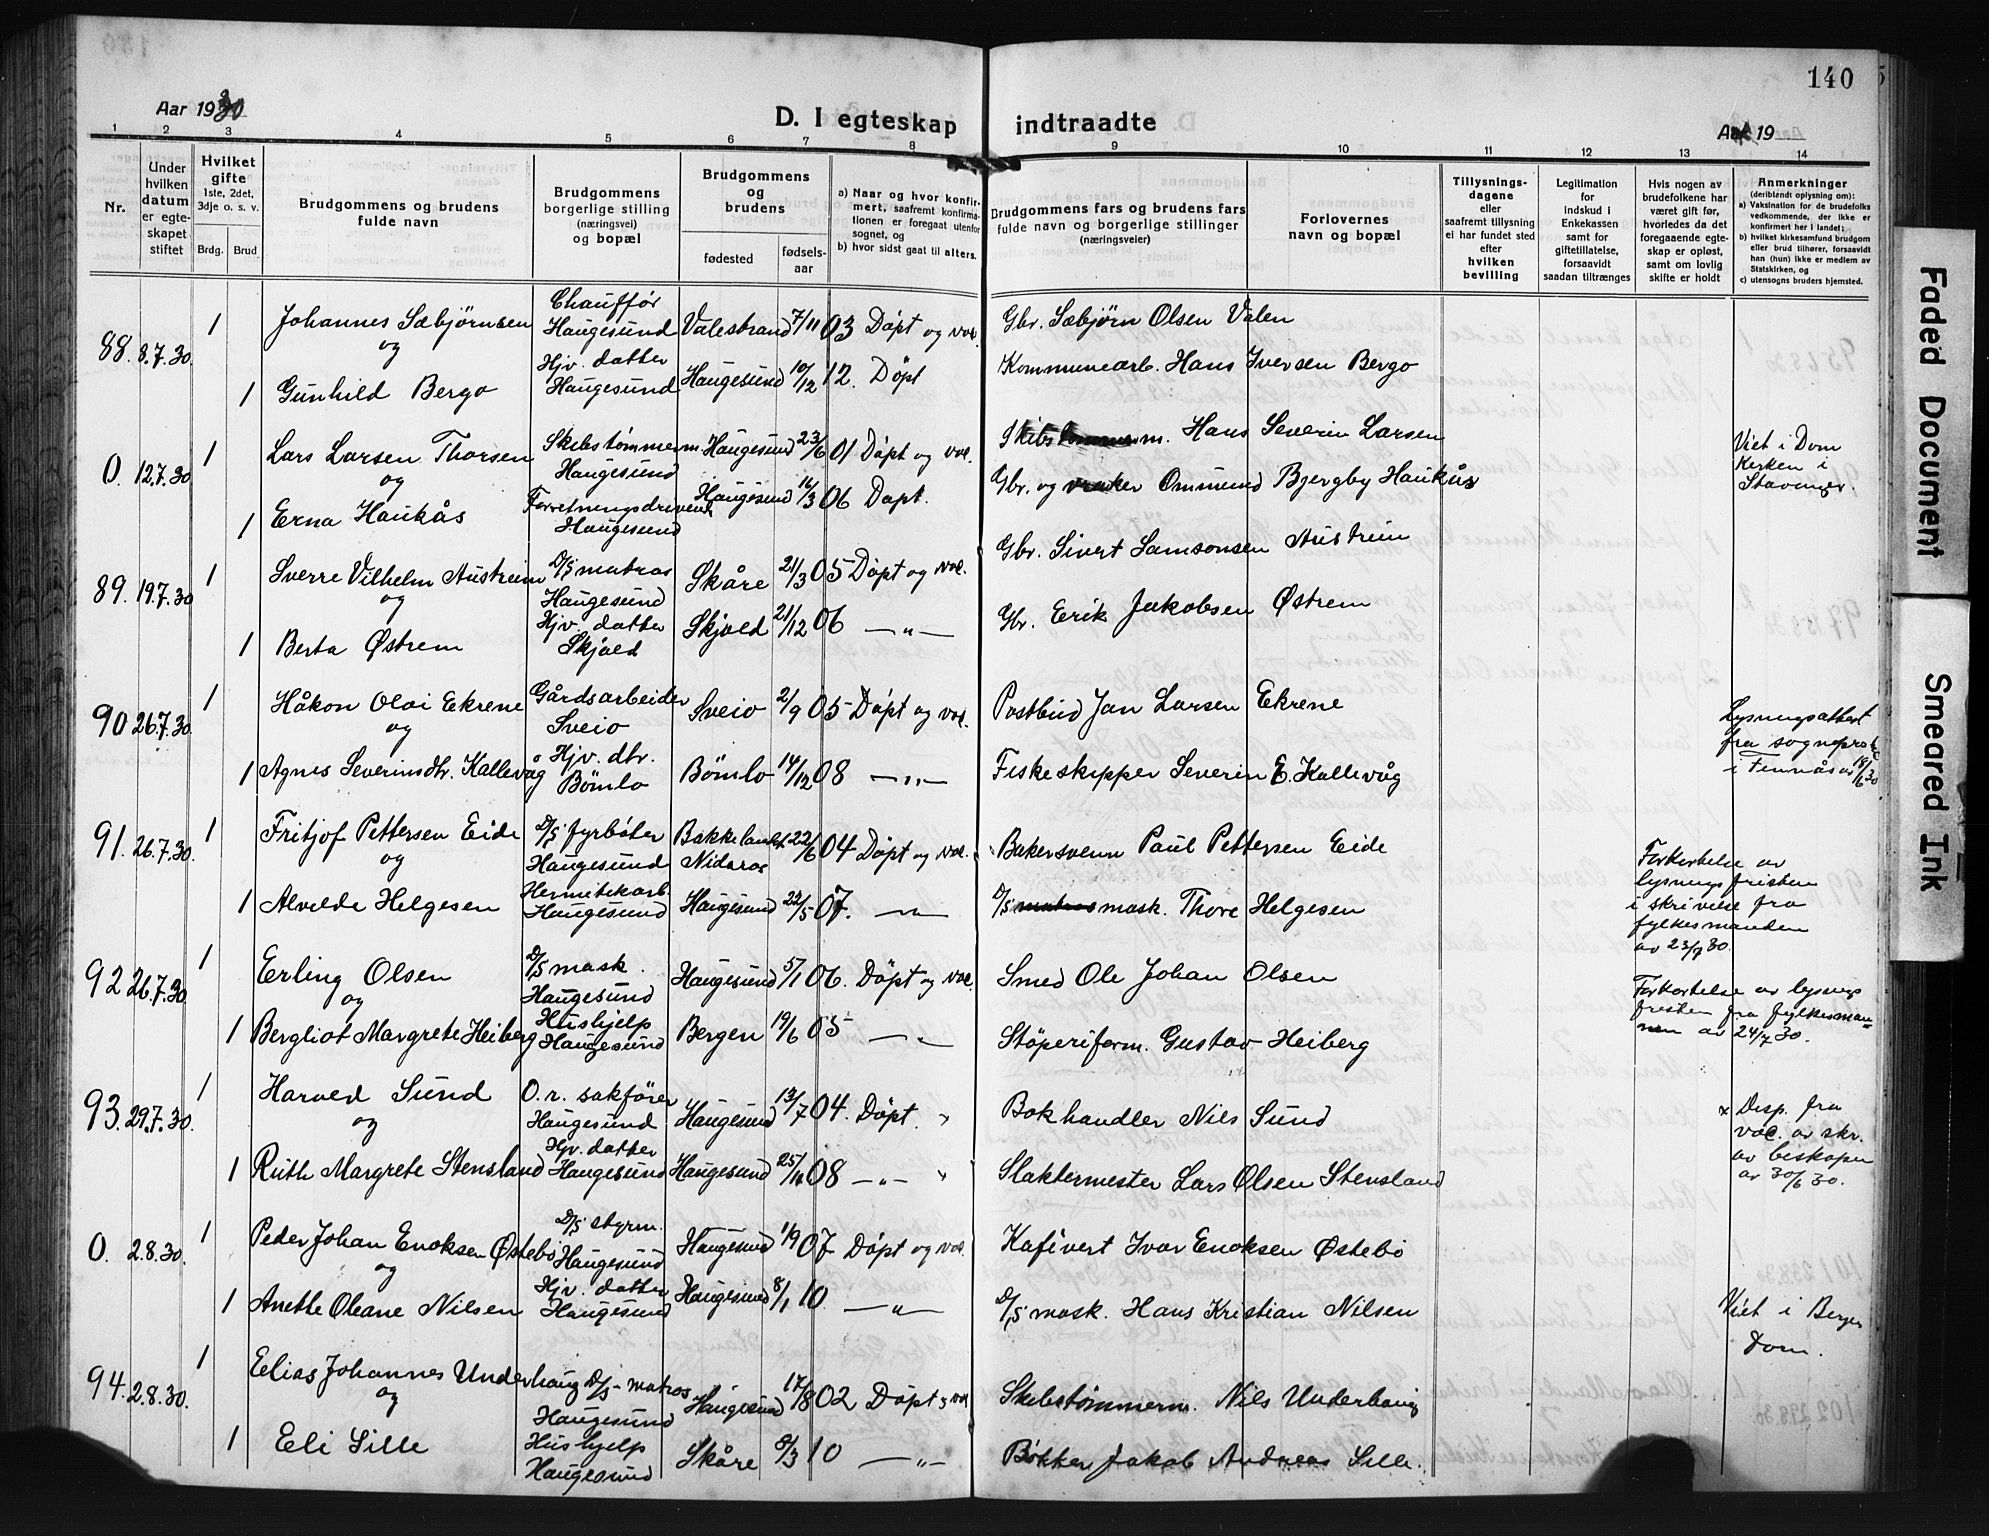 140
Aar 1930
D. I egteskap indtraadte
Aar 19
1 2 3 4 5 6 7 8 9 10 11 12 13 14
Nr.
Under hvilken datum er egteskapet stiftet
Hvilket gifte
1ste, 2det, 3dje o. s. v.
Brdg. Brud
Brudgommens og brudens fulde navn
Brudgommens borgerlige stilling (næringsvei) og bopæl
Brudgommens og brudens
fødested
fødselsaar
a) Naar og hvor konfirmert, saafremt konfirmationen er foregaat utenfor sognet, og
b) hvor sidst gaat til alters.
Brudgommens fars og brudens fars fulde navn og borgerlige stillinger (næringsveier)
Forlovernes navn og bopæl
Tillysningsdagene eller saafremt tillysning ei har fundet sted efter hvilken bevilling
Legitimation for indskud i Enkekassen samt for giftetillatelse, forsaavidt saadan tiltrænges
Hvis nogen av brudefolkene har været gift før, hvorledes da det foregaaende egteskap er opløst, samt om lovlig skifte er holdt
Anmerkninger
(deriblandt oplysning om):
a) Vaksination for de brudefolks vedkommende, der ikke er konfirmert her i landet;
b) hvilket kirkesamfund brudgom eller brud tilhører, forsaavidt han (hun) ikke er medlem av Statskirken, og
c) utensogns bruders hjemsted.
88. 8.7.30. 1 Johannes Sæbjørnsen Chauffør Haugesund Valestrand 7/11 03 Döpt og vac. Gbr. Sæbjørn Olsen Valen
og
1 Gunhild Bergo Hjv. datter Haugesund Haugesund 10/12 12. Döpt Kommunearb. Hans Iversen Bergo
0. 12.7.30 1 Lars Larsen Thorsen Skibstømmerm. Haugesund Haugesund 23/6 01 Döpt og vac. Hans Severin Larsen
og
1 Erna Haukås Haugesund Haugesund 16/3 06 Döpt. Gbr. og vraker Ommund Bjergby Haukås
Viet i Dom Kirken i Stavanger.
89. 19.7.30 1 Sverre Vilhelm Austrein D/S matros Haugesund Skåre 21/3 05 Döpt og vac. Gbr. Sivert Samsonsen Austrein
og
1 Berta Østrem Hjv. datter Skjold Skjold 21/12 06 —"— Gbr. Erik Jakobsen Østrem
90 26.7.30. 1 Håkon Olai Ekrene Gårdsarbeider Sveio Sveio 2/9 05 Döpt og vac. Postbud Jan Larsen Ekrene
og
1 Agnes Severinsdtr. Kallevåg Hjv. dtr. Bömlo Bömlo 14/12 08 —"— Fiskeskipper Severin E. Kallevåg
Lysningsattest fra sogneprosten i Finnås av 18/6 30
91. 26.7.30. 1 Fritjof Pettersen Eide D/S fyrböter Haugesund Bakkelandet Nidaros 22/6 04 Döpt og vac. Bakersvenn Paul Pettersen Eide
og
1 Alvilde Helgesen Hermetikarb. Haugesund Haugesund 22/5 07. —"— D/S mask. Thore Helgesen
Forkortelse av lysningsfristen i skrivelse fra fylkesmanden av 23/7 30.
92 26.7.30 1 Erling Olsen D/S mask. Haugesund Haugesund 5/1 06. Döpt og vac. Smed Ole Johan Olsen
og
1 Bergliot Margrete Heiberg Hushjelp Haugesund Bergen 19/6 05 —"— Støperiform. Gustav Heiberg
Forkortelse av lysningsfristen fra fylkesmannen av 24/7 30.
93. 29.7.30. 1 Harved Sund O. r. sakfører Haugesund Haugesund 13/7 04. Döpt. Bokhandler Nils Sund
og
1 Ruth Margrete Stensland Hjv. datter Haugesund Haugesund 25/11 08 —"— Slaktermester Lars Olsen Stensland
x Disp. fra vac. av skr. av biskopen av 30/6 30.
0. 2.8.30. 1 Peder Johan Enoksen Østebö D/S styrm. Haugesund Haugesund 1/9 07 Döpt og vac. Kafévert Ivar Enoksen Østebö
og
1 Anette Oleane Nilsen Hjv. datter Haugesund Haugesund 8/1 10 —"— D/S mask. Hans Kristian Nilsen
Viet i Bergen Dom.
94. 2.8.30. 1 Elias Johannes Underhaug D/S matros Haugesund Haugesund 17/8 02 Döpt og vac Skibstömmerm. Nils Underhaug
og
1 Eli Lille Hushjelp Haugesund Skåre 8/3 10 —"— Bøkker Jakob Andreas Lille.
Faded Document
Smeared Ink